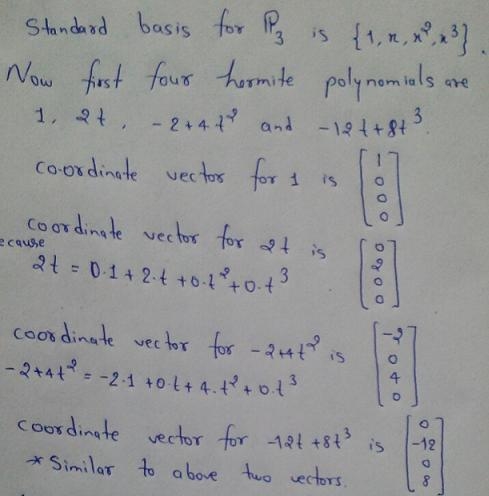 Standard basis for ℙ₃ is {1, x, x², x³}.
Now first four hermite polynomials are
1, 2t, -2+4t² and -12t+8t³.
co-ordinate vector for 1 is [1 0 0 0]
coordinate vector for 2t is [0 2 0 0]
ecause
2t = 0·1 + 2·t + 0·t² + 0·t³
coordinate vector for -2+4t² is [-2 0 4 0]
-2+4t² = -2·1 + 0·t + 4·t² + 0·t³
coordinate vector for -12t+8t³ is [0 -12 0 8]
* Similar to above two vectors.